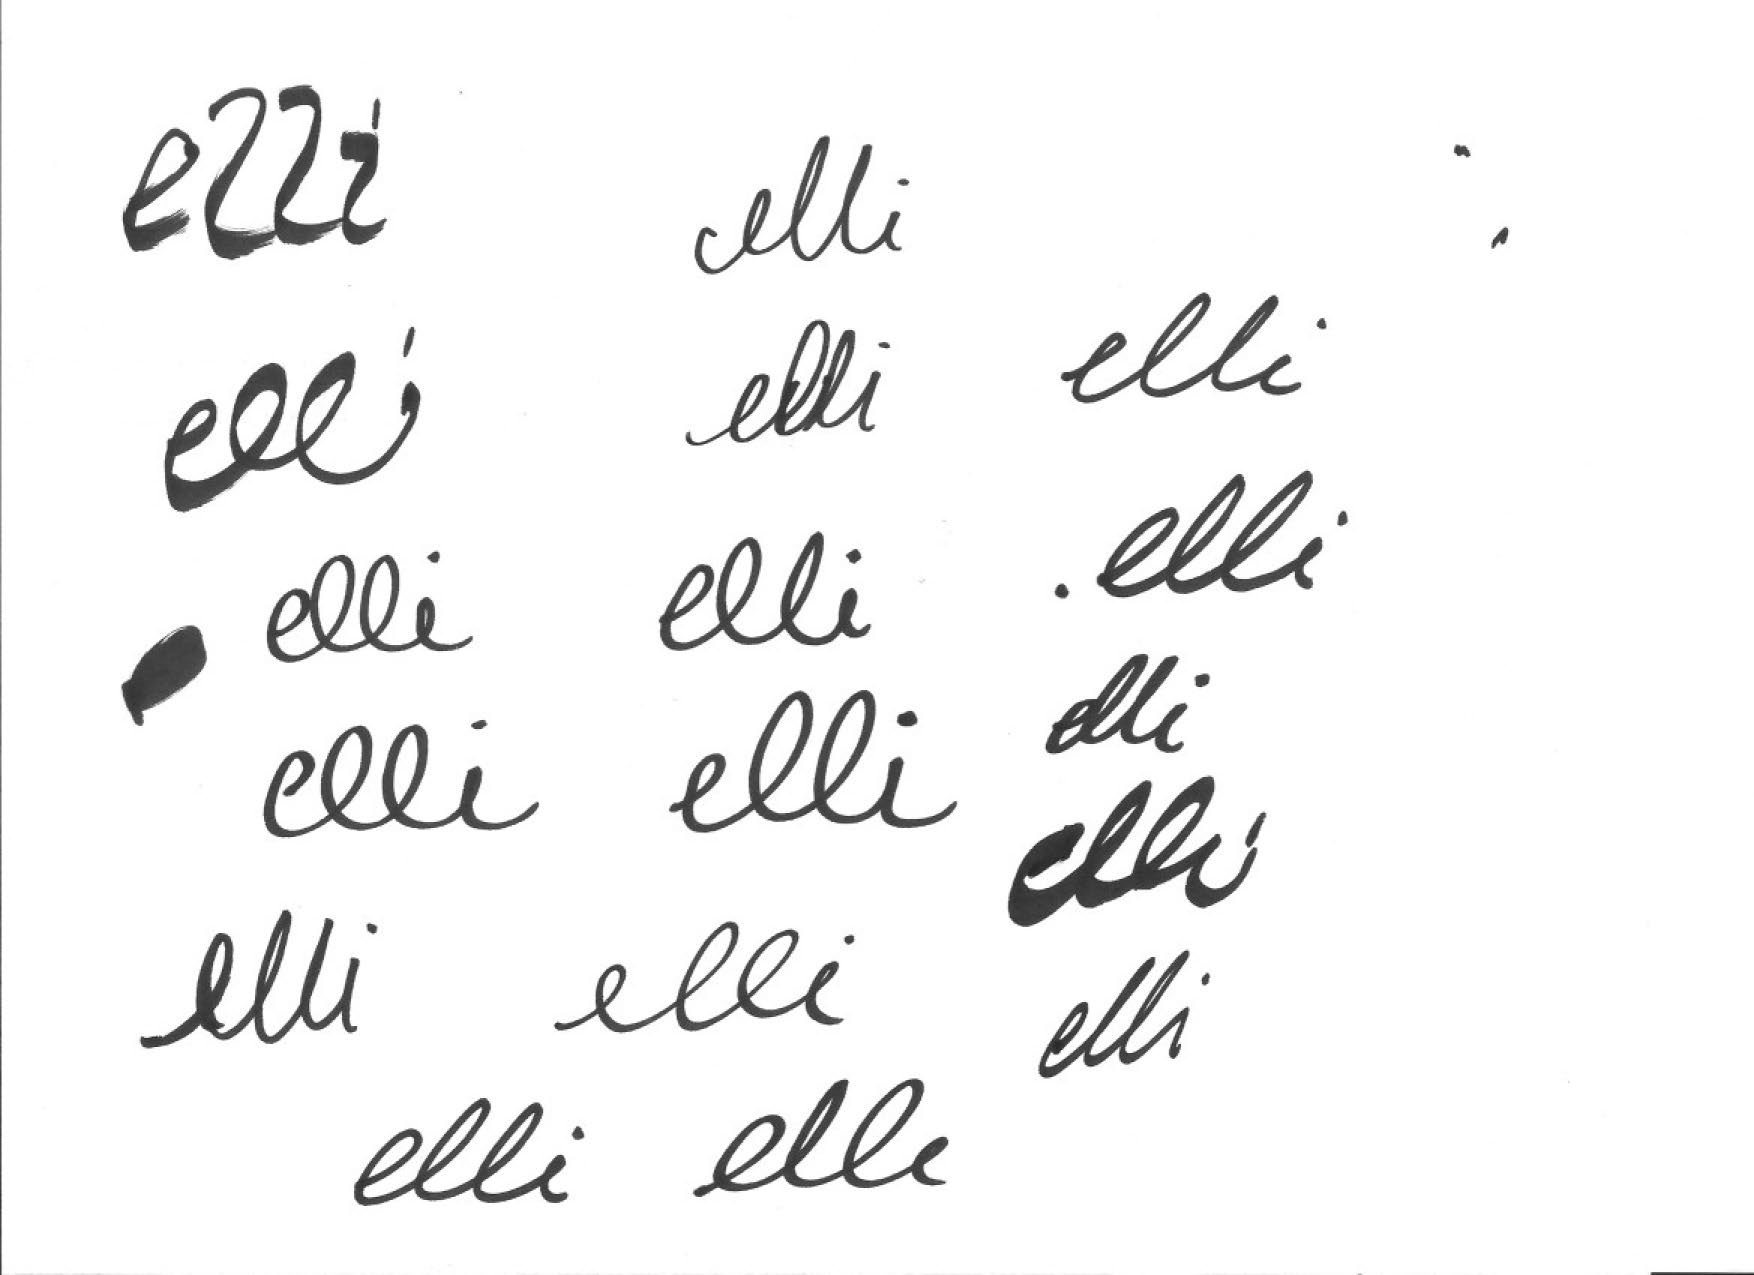 elli elli
elli elli elli
elli elli elli
elli elli elli
elli
elli elli elli
elli elli